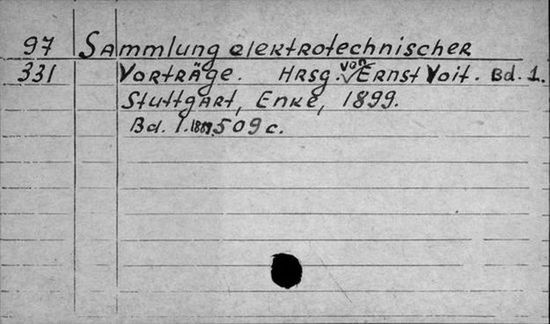 97 Sammlung elektrotechnischer
331 Vorträge. Hrsg. von Ernst Voit. Bd. 1.
Stuttgart, Enke, 1899.
Bd. 1. 1899. 509 c.